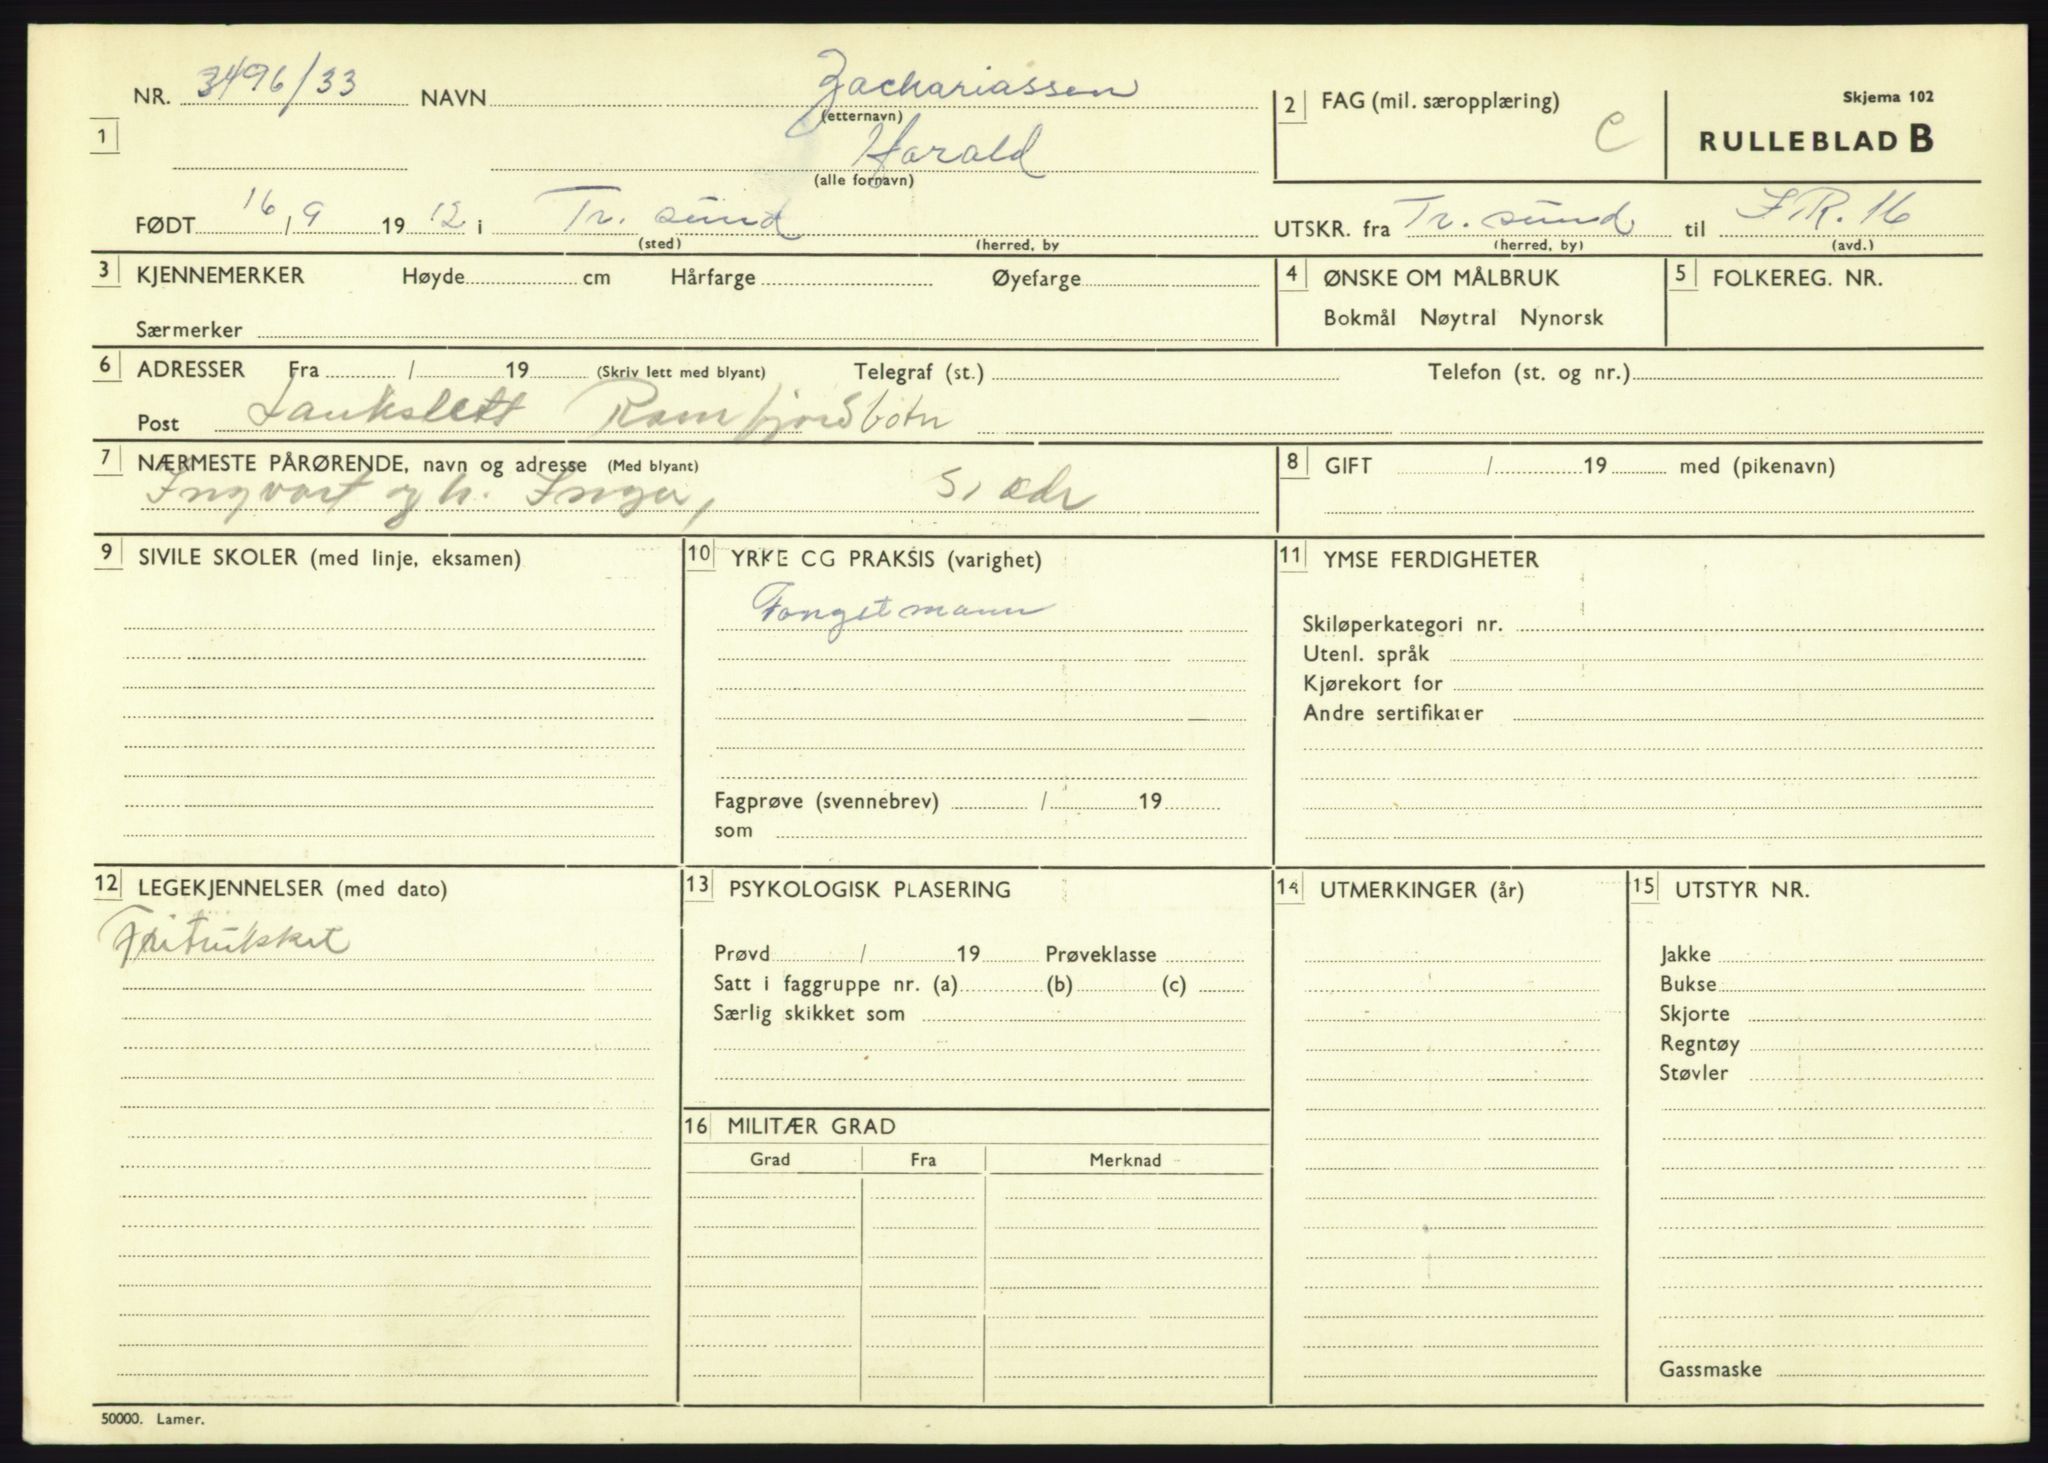 Skjema 102
NR. 3496/33 NAVN Zachariassen
(etternavn)
1
Harald
(alle fornavn)
2 FAG (mil. særopplæring) C
RULLEBLAD B
FØDT 16/9 1912 i Tr. sund
(sted) (herred, by
UTSKR. fra Tr. sund til I.R. 16
(herred, by) (avd.)
3 KJENNEMERKER Høyde cm Hårfarge Øyefarge
Særmerker
4 ØNSKE OM MÅLBRUK
Bokmål Nøytral Nynorsk
5 FOLKEREG. NR.
6 ADRESSER Fra / 19 (Skriv lett med blyant) Telegraf (st.) Telefon (st. og nr.)
Post Laukslett Ramfjordbotn
7 NÆRMESTE PÅRØRENDE, navn og adresse (Med blyant)
Ingvart og h. Inga, s. adr
8 GIFT / 19 med (pikenavn)
9 SIVILE SKOLER (med linje, eksamen)
10 YRKE CG PRAKSIS (varighet)
Fangstmann
Fagprøve (svennebrev) / 19
som
11 YMSE FERDIGHETER
Skiløperkategori nr.
Utenl. språk
Kjørekort for
Andre sertifikater
12 LEGEKJENNELSER (med dato)
Fritrukket
13 PSYKOLOGISK PLASERING
Prøvd / 19 Prøveklasse
Satt i faggruppe nr. (a) (b) (c)
Særlig skikket som
14 UTMERKINGER (år)
15 UTSTYR NR.
Jakke
Bukse
Skjorte
Regntøy
Støvler
Gassmaske
16 MILITÆR GRAD
Grad Fra Merknad
50000. Lamer.